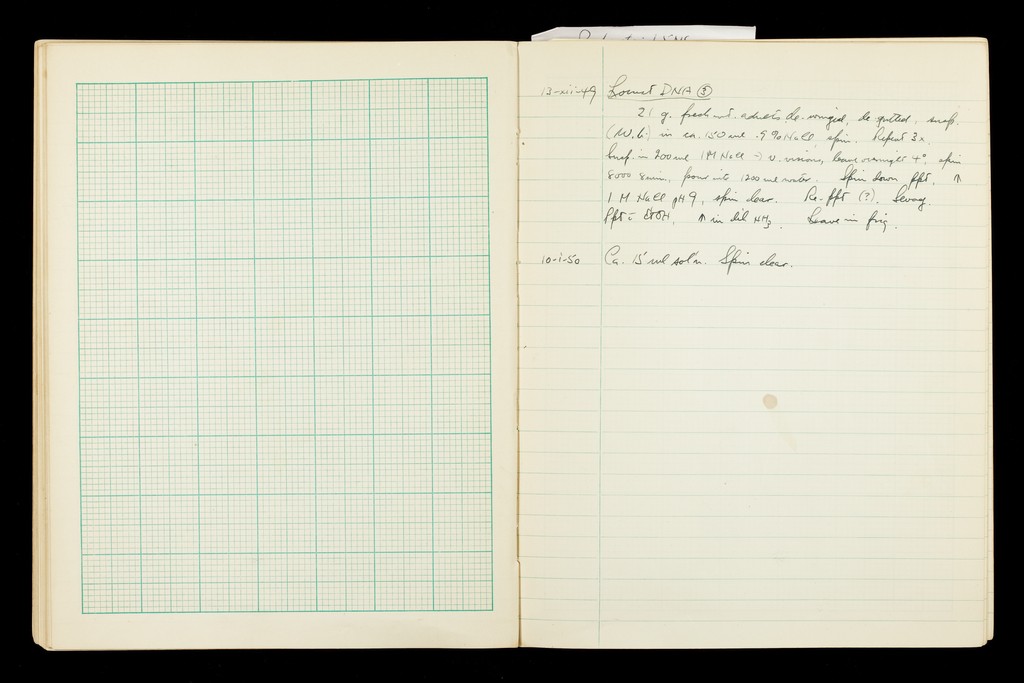 13-xii-49 Locust DNA ③
21 g. fresh wt. adults de-winged, de-gutted, susp.
(W.B.) in ca. 150 ml .9% NaCl, spin. Repeat 3x.
Susp. in 200 ml 1M NaCl → v. viscous, leave overnight 4°, spin
8000 8 min, pour into 1200 ml water. Spin down ppt, ↑
1 M NaCl pH 9, spin clear. Re-ppt (?), Sevag.
Ppt c̄ EtOH, ↑ in dil NH3. Leave in frig.
10-i-50 Ca. 15 ml sol'n. Spin clear.